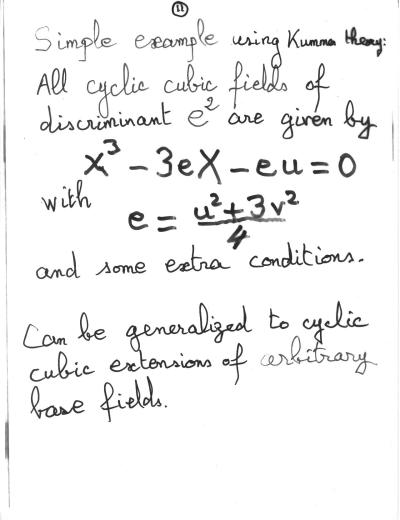 11
Simple example using Kummer theory:
All cyclic cubic fields of
discriminant e² are given by
X³ - 3eX - eu = 0
with
e = (u² + 3v²)/4
and some extra conditions.
Can be generalized to cyclic
cubic extensions of arbitrary
base fields.